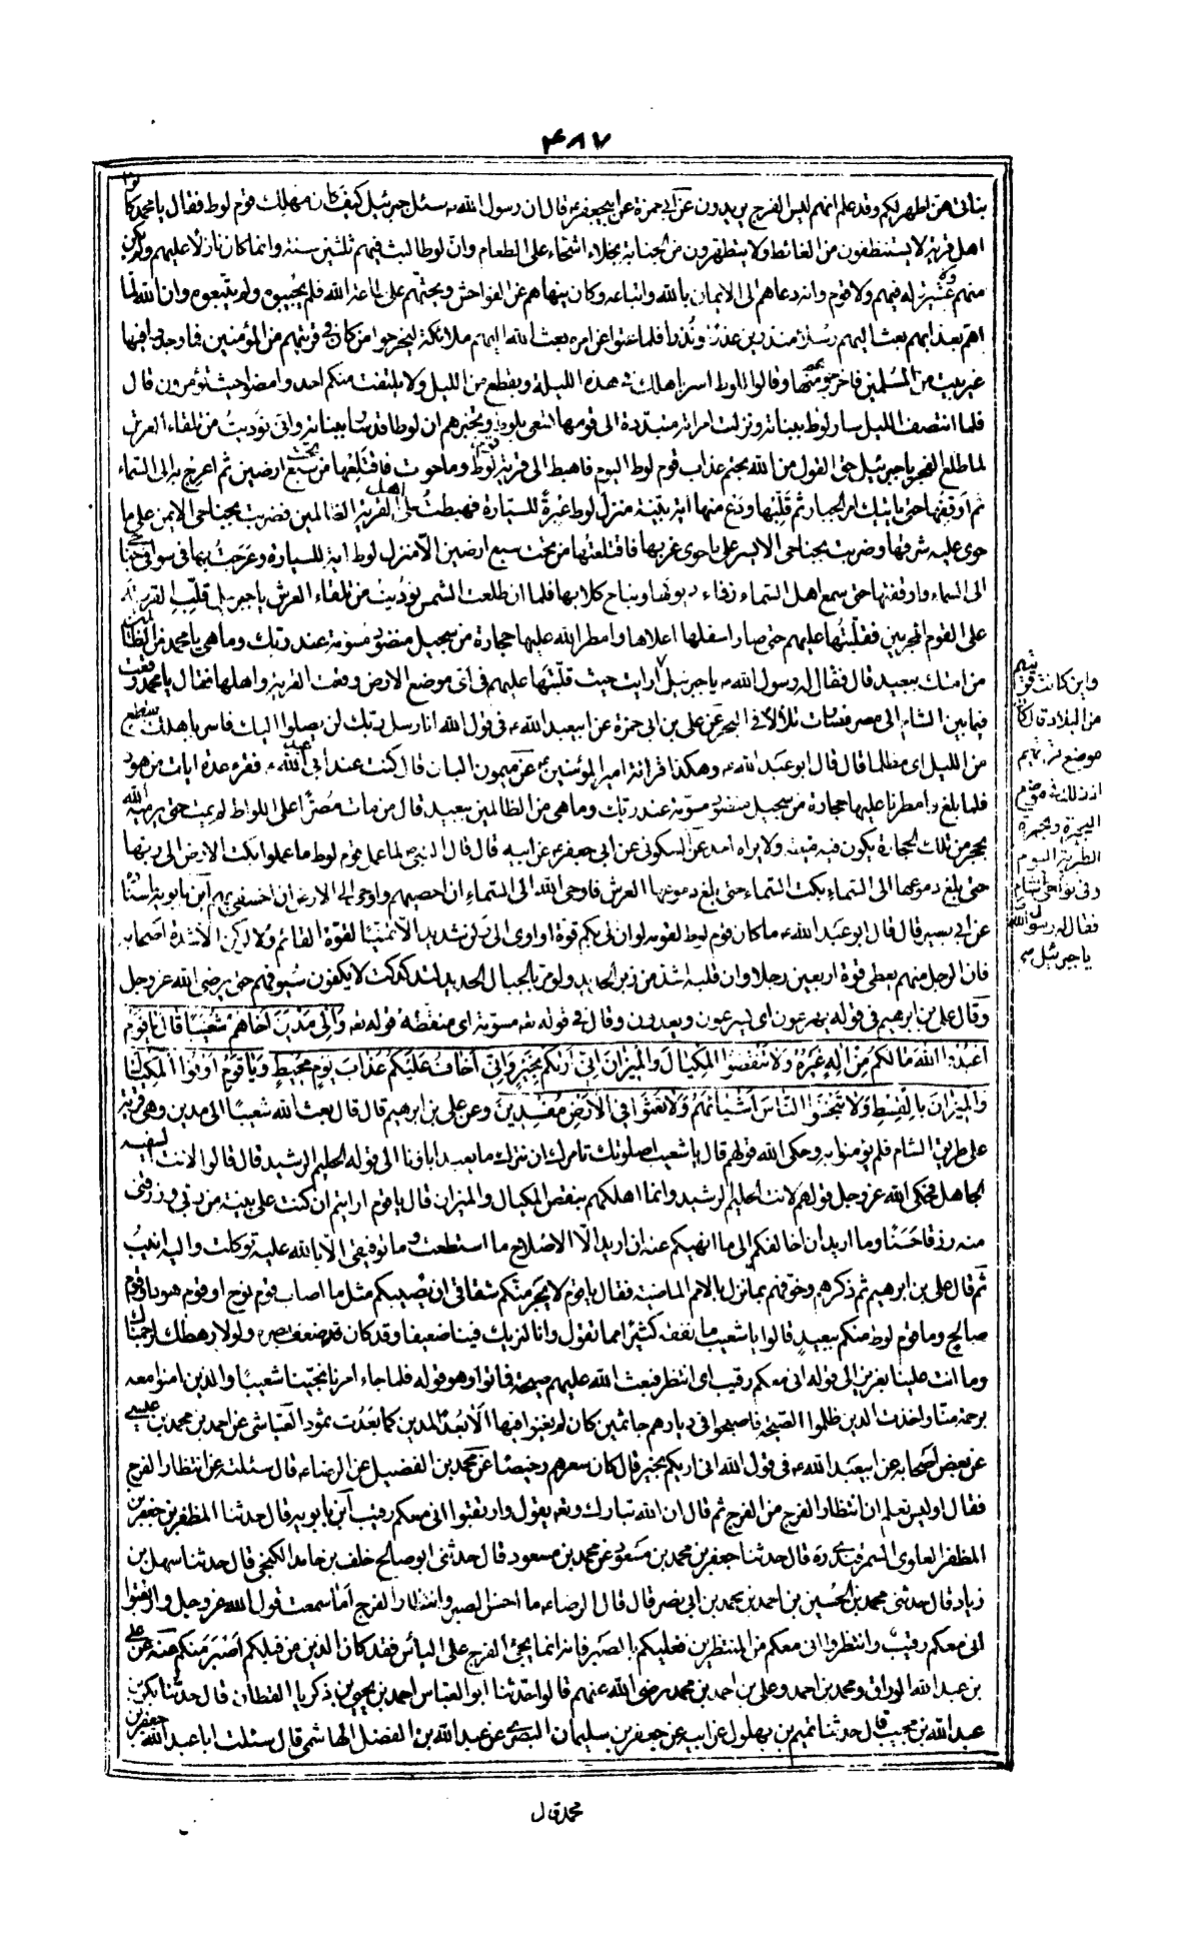 ٤٨٧
بناتي هن اطهر لكم وقد علم انهم ليس الفرج يريدون عن ابي حمزة عن ابيجعفر ع قال ان رسول الله ص سئل جبرئيل كيف كان مهلك قوم لوط فقال يا محمد كا
اهل قرية لا يستنظفون من الغائط ولا يتطهرون من الجنابة بخلاء اشحاء على الطعام وان لوطا لبث فيهم ثلثين سنة وانما كان نازلا عليهم ولم يكن
منهم ولا عشيرة له فيهم ولا قوم وانه دعاهم الى الايمان بالله واتباعه وكان ينهاهم عن الفواحش ويحثهم على طاعة الله فلم يجيبوه ولم يتبعوه وان الله لما
اهم بعذابهم بعث اليهم رسلا منذرين عذرا ونذرا فلما عتوا عن امره بعث الله اليهم ملائكة ليخرجوا من كان في قريتهم من المؤمنين فما وجدوا فيها
غير بيت من المسلمين فاخرجوهم منها وقالوا للوط اسر باهلك من هذه الليلة بقطع من الليل ولا يلتفت منكم احد وامضوا حيث تؤمرون قال
فلما انتصف الليل سار لوط ببناته وتولت امراته مدبرة الى قومها تسعى بلوط وتخبرهم ان لوطا قد سار ببناته واني نوديت من تلقاء العرش
لما طلع الفجر يا جبرئيل حق القول من الله بحتم عذاب قوم لوط اليوم فاهبط الى قرية قوم لوط وما حوت فاقتلعها من تحت سبع ارضين ثم اعرج بها الى السماء
ثم اوقفها حتى ياتيك امر الجبار ثم قلبها ودع منها اية بينة منزل لوط عبرة للسيارة فهبطت على اهل القرية الظالمين فضربت بجناحي الايمن على ما
حوى عليه شرقها وضربت بجناحي الايسر على ما حوى غربها فاقتلعتها من تحت سبع ارضين الا منزل لوط اية للسيارة وعرجت بها في خوافي جناحي
الى السماء واوقفتها حتى سمع اهل السماء زقاء ديوكها ونباح كلابها فلما ان طلعت الشمس نوديت من تلقاء العرش يا جبرئيل قلب القرية
على القوم المجرمين فقلبتها عليهم حتى صار اسفلها اعلاها وامطر الله عليها حجارة من سجيل منضود مسومة عند ربك وما هي يا محمد من الظالمين
من امتك ببعيد قال فقال له رسول الله ص يا جبرئيل ارايت حيث قلبتها عليهم في اي موضع الارض وقعت القرية واهلها فقال يا محمد وقعت
فيما بين الشام الى مصر فصارت تلالا في البحر عن علي بن ابي حمزة عن ابيعبد الله ع في قول الله انا رسل ربك لن يصلوا اليك فاسر باهلك بقطع
من الليل اي مظلما قال قال ابو عبد الله ع وهكذا قرائة امير المؤمنين ع عن ميمون البان قال كنت عند ابي عبد الله ع فقرء عنده ايات من هود
فلما بلغ وامطرنا عليها حجارة من سجيل منضود مسومة عند ربك وما هي من الظالمين ببعيد قال من مات مصرا على اللواط لم يمت حتى يرميه الله
بحجر من تلك الحجارة يكون فيه منيته ولا يراه احد عن السكوني عن ابي جعفر ع عن ابيه قال قال النبي ص لما عمل قوم لوط ما عملوا بكت الارض الى ربها
حتى بلغ دموعها الى السماء بكت السماء حتى بلغ دموعها العرش فاوحى الله الى السماء ان احصبيهم واوحى الى الارض ان اخسفي بهم ابن بابويه
عن ابي بصير قال قال ابو عبد الله ع ما كان قوم لوط لقومه لو ان لي بكم قوة او اوى الى ركن شديد الا تمنيا لقوة القائم ولا ركن الا شدة اصحابه
فان الرجل منهم يعطى قوة اربعين رجلا وان قلبه اشد من زبر الحديد ولو مر بالجبال الحديد لتدكدكت لا يكفون سيوفهم حتى يرضى الله عز وجل
وقال علي بن ابرهيم في قوله يهرعون اي يسرعون ويعدون وقال في قوله تع مسومة اي منقطة قوله تع والى مدين اخاهم شعيبا قال يا قوم
اعبدوا الله ما لكم من اله غيره ولا تنقصوا المكيال والميزان اني اريكم بخير واني اخاف عليكم عذاب يوم محيط ويا قوم اوفوا المكيال
والميزان بالقسط ولا تبخسوا الناس اشيائهم ولا تعثوا في الارض مفسدين وعن علي بن ابرهيم قال قال بعث الله شعيبا الى مدين وهي قرية
على طريق الشام فلم يؤمنوا به وحكى الله قولهم قال يا شعيب اصلوتك تامرك ان نترك ما يعبد اباؤنا الى قوله الحليم الرشيد قال قالوا لانت السفيه
الجاهل فحكى الله عز وجل قولهم لانت الحليم الرشيد وانما اهلكهم بنقص المكيال والميزان قال يا قوم ارايتم ان كنت على بينة من ربي ورزقني
منه رزقا حسنا وما اريد ان اخالفكم الى ما انهيكم عنه ان اريد الا الاصلاح ما استطعت وما توفيقي الا بالله عليه توكلت واليه انيب
ثم قال علي بن ابرهيم ثم ذكرهم وخوفهم بما نزل بالامم الماضية فقال يا قوم لا يجرمنكم شقاقي ان يصيبكم مثل ما اصاب قوم نوح او قوم هود او قوم
صالح وما قوم لوط منكم ببعيد قالوا يا شعيب ما نفقه كثيرا مما تقول وانا لنريك فينا ضعيفا وقد كان قد ضعف بصره ولولا رهطك لرجمناك
وما انت علينا بعزيز الى قوله اني معكم رقيب اي انتظر فبعث الله عليهم صيحة فماتوا وهو قوله فلما جاء امرنا نجينا شعيبا والذين امنوا معه
برحمة منا واخذت الذين ظلموا الصيحة فاصبحوا في ديارهم جاثمين كان لم يغنوا فيها الا بعدا لمدين كما بعدت ثمود العياشي عن احمد بن محمد بن عيسى
عن بعض اصحابه عن ابيعبد الله ع في قول الله اني اريكم بخير قال كان سعرهم رخيصا عن محمد بن الفضيل عن الرضا ع قال سئلته عن انتظار الفرج
فقال اوليس تعلم ان انتظار الفرج من الفرج ثم قال ان الله تبارك وتع يقول وارتقبوا اني معكم رقيب ابن بابويه قال حدثنا المظفر بن جعفر بن
المظفر العلوي السمرقندي ره قال حدثنا جعفر بن محمد بن مسعود عن محمد بن مسعود قال حدثني ابو صالح خلف بن حامد الكنجي قال حدثنا سهل بن
زياد قال حدثني محمد بن الحسين بن احمد بن محمد بن ابي نصر قال قال الرضا ع ما احسن الصبر وانتظار الفرج اما سمعت قول الله عز وجل وارتقبوا
اني معكم رقيب وانتظروا اني معكم من المنتظرين فعليكم بالصبر فانه انما يجئ الفرج على الياس فقد كان الذين من قبلكم اصبر منكم عنه عن علي
بن عبد الله الوراق ومحمد بن احمد وعلي بن احمد بن محمد رضي الله عنهم قالوا حدثنا ابو العباس احمد بن يحيى بن زكريا القطان قال حدثنا بكر بن
عبد الله بن حبيب قال حدثنا تميم بن بهلول عن ابيه عن جعفر بن سليمان البصري عن عبد الله بن الفضل الهاشمي قال سئلت ابا عبد الله جعفر بن
واين كانت قريتهم
من البلاد قال كان
موضع قريتهم
اذ ذلك في موضع
البحيرة وبحيرة
الطبرية اليوم
وفي نواحي الشام
فقال له رسول الله
يا جبرئيل صح
محمد قال